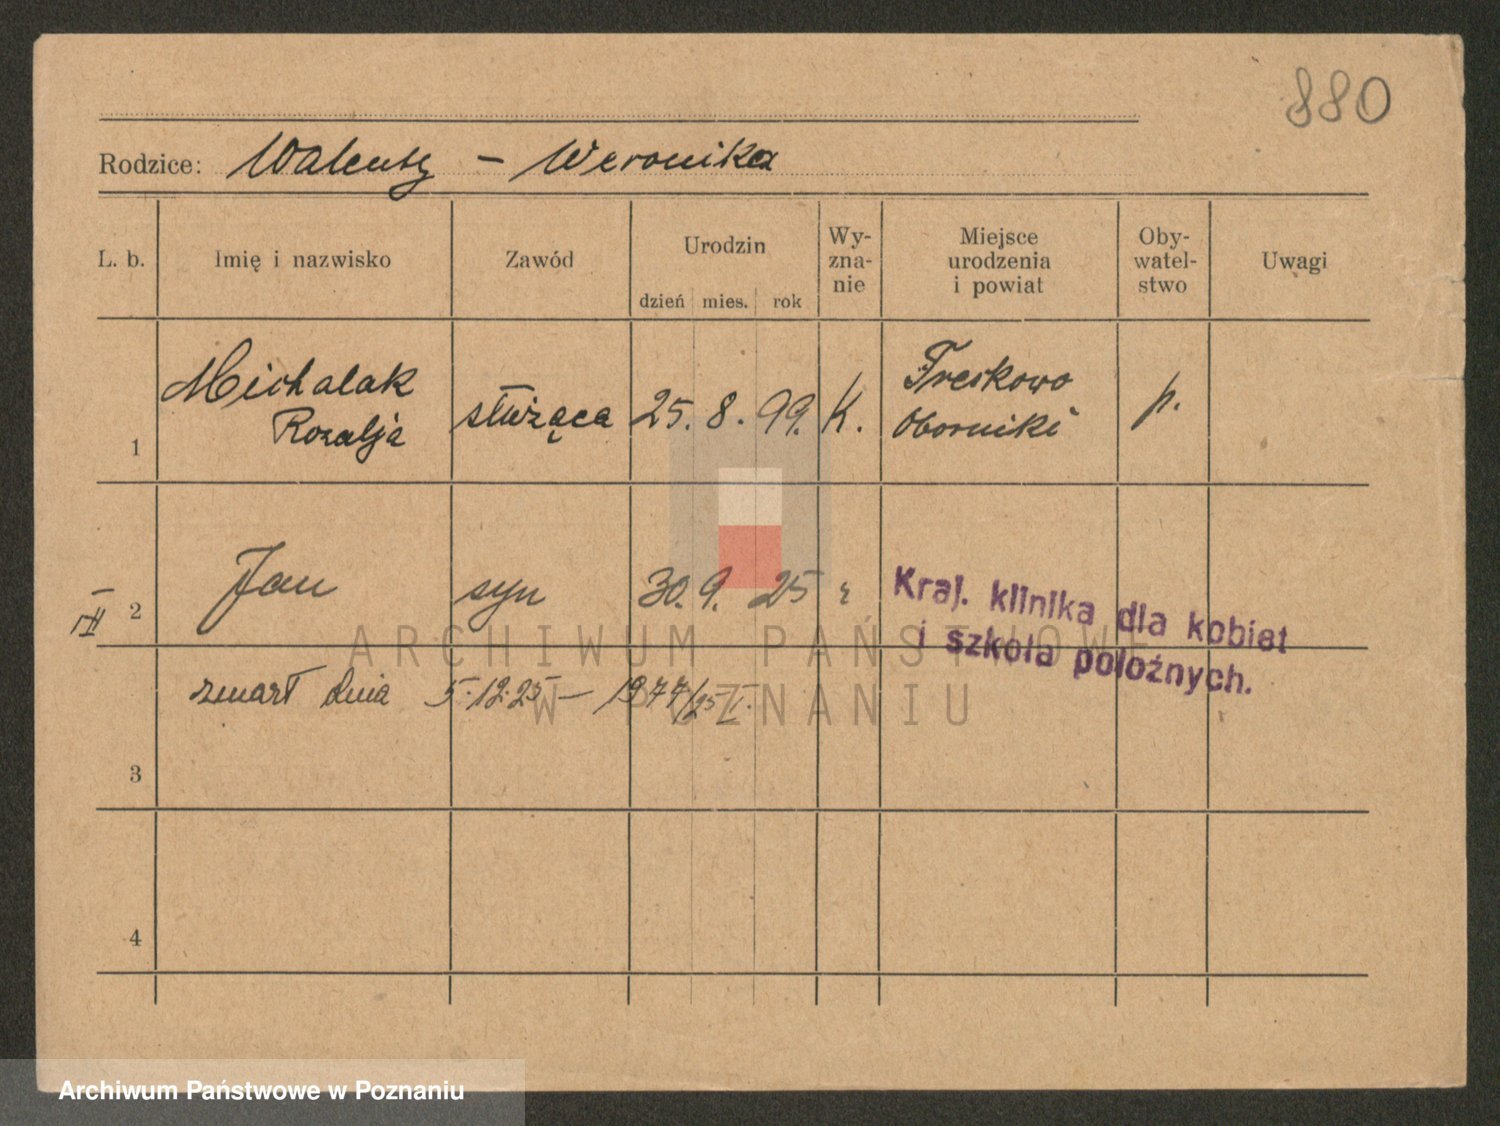 880
Rodzice: Walenty - Weronika
L. b. Imię i nazwisko Zawód Urodzin dzień mies. rok Wy-zna-nie Miejsce urodzenia i powiat Oby-watel-stwo Uwagi
1 Michalak Rozalja służąca 25. 8. 99. K. Treskowo Oborniki p.
2 Jan syn 30. 9. 25 r
Kraj. klinika dla kobiet
i szkoła położnych.
zmarł dnia 5.12.25 – 1977/25 I.
3
4
ARCHIWUM PAŃSTWOWE
W POZNANIU
Archiwum Państwowe w Poznaniu